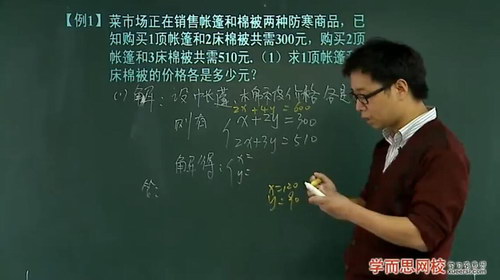 【例1】菜市场正在销售帐篷和棉被两种防寒商品，已
知购买1顶帐篷和2床棉被共需300元，购买2顶
帐篷和3床棉被共需510元.（1）求1顶帐篷
床棉被的价格各是多少元？
(1) 解：设 帐篷、棉被 价格各是
2x+4y=600
则有 { x+2y=300
2x+3y=510
解得：{ x=
y=
答
x=120
y=90
学而思网校